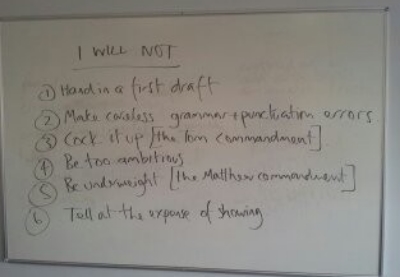 I WILL NOT
① Hand in a first draft
② Make careless grammar + punctuation errors
③ Cock it up [the Tom commandment]
④ Be too ambitious
⑤ Be underweight [the Matthew commandment]
⑥ Tell at the expense of showing